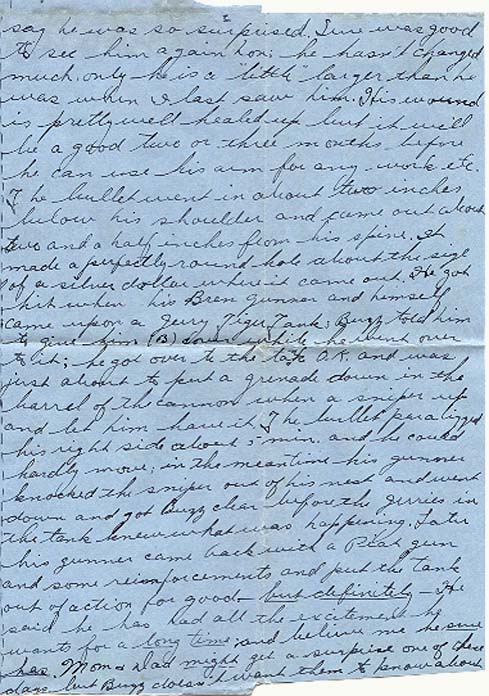 2
say he was so surprised. Sure was good
to see him again hon; he hasn't changed
much only - he is a "little" larger than he
was when I last saw him. His wound
is pretty well healed up but it will
be a good two or three months before
he can use his arm for any work etc.
The bullet went in about two inches
below his shoulder and came out about
two and a half inches from his spine. It
made a perfectly round hole about the size
of a silver dollar where it came out. He got
hit when his Bren gunner and himself
came upon a Jerry Tiger Tank; Buzz told him
to give him (B) cover while he went over
to it; he got over to the tank O.K. and was
just about to put a grenade down in the
barrel of the cannon when a sniper up
and let him have it. The bullet paralized
his right side about 5 min. and he could
hardly move; in the meantime his gunner
knocked the sniper out of his nest and went
down and got Buzz clear before the jerries in
the tank knew what was happening. Later
his gunner came back with a Piat gun
and some reinforcements and put the tank
out of action for good - but definitely - He
said he has had all the excitement he
wants for a long time; and believe me he sure
has. Mom & Dad might get a surprise one of these
days but Buzz doesn't want them to know about